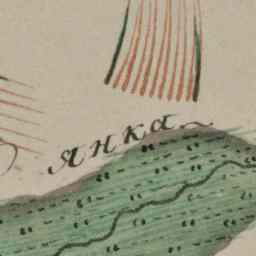 янка